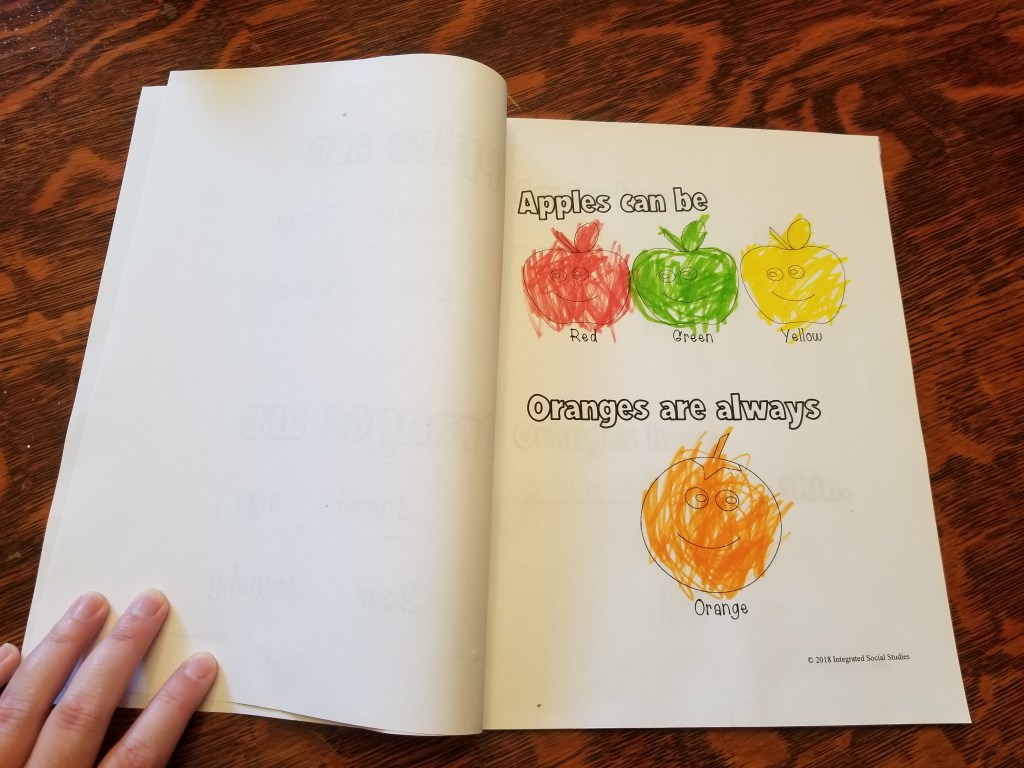 Apples can be
Red Green Yellow
Oranges are always
Orange
© 2018 Integrated Social Studies